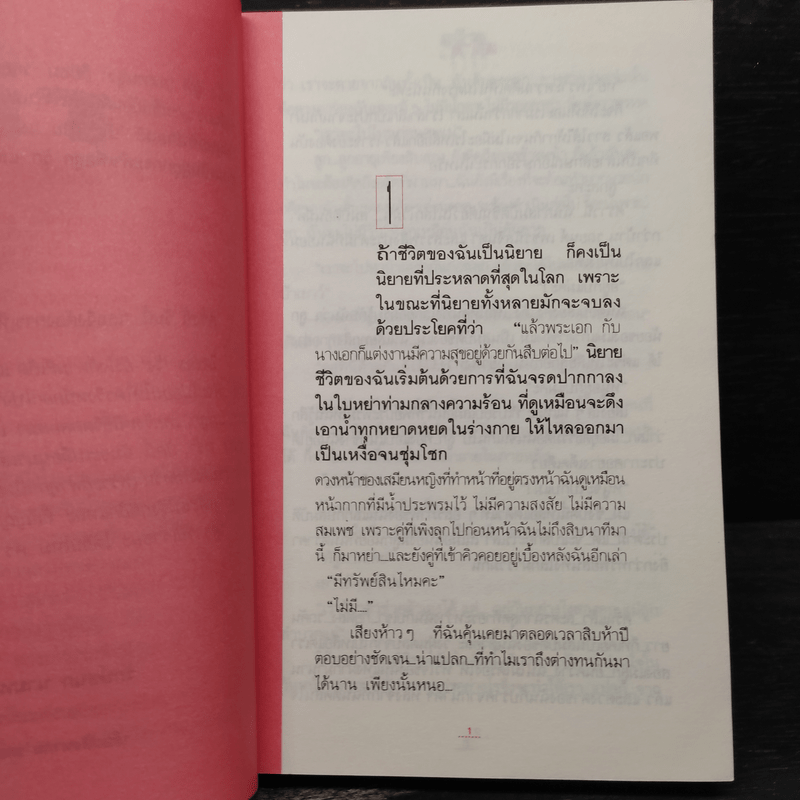 ๑
ถ้าชีวิตของฉันเป็นนิยาย ก็คงเป็น
นิยายที่ประหลาดที่สุดในโลก เพราะ
ในขณะที่นิยายทั้งหลายมักจะจบลง
ด้วยประโยคที่ว่า “แล้วพระเอก กับ
นางเอกก็แต่งงานมีความสุขอยู่ด้วยกันสืบต่อไป” นิยาย
ชีวิตของฉันเริ่มต้นด้วยการที่ฉันจรดปากกาลง
ในใบหย่าท่ามกลางความร้อน ที่ดูเหมือนจะดึง
เอาน้ำทุกหยาดหยดในร่างกาย ให้ไหลออกมา
เป็นเหงื่อจนชุ่มโชก
ดวงหน้าของเสมียนหญิงที่ทำหน้าที่อยู่ตรงหน้าฉันดูเหมือน
หน้ากากที่มีน้ำประพรมไว้ ไม่มีความสงสัย ไม่มีความ
สมเพช เพราะคู่ที่เพิ่งลุกไปก่อนหน้าฉันไม่ถึงสิบนาทีมา
นี้ ก็มาหย่า...และยังคู่ที่เข้าคิวคอยอยู่เบื้องหลังฉันอีกเล่า
“มีทรัพย์สินไหมคะ”
“ไม่มี...”
เสียงห้าวๆ ที่ฉันคุ้นเคยมาตลอดเวลาสิบห้าปี
ตอบอย่างชัดเจน...น่าแปลก...ที่ทำไมเราถึงต่างทนกันมา
ได้นาน เพียงนั้นหนอ...
1